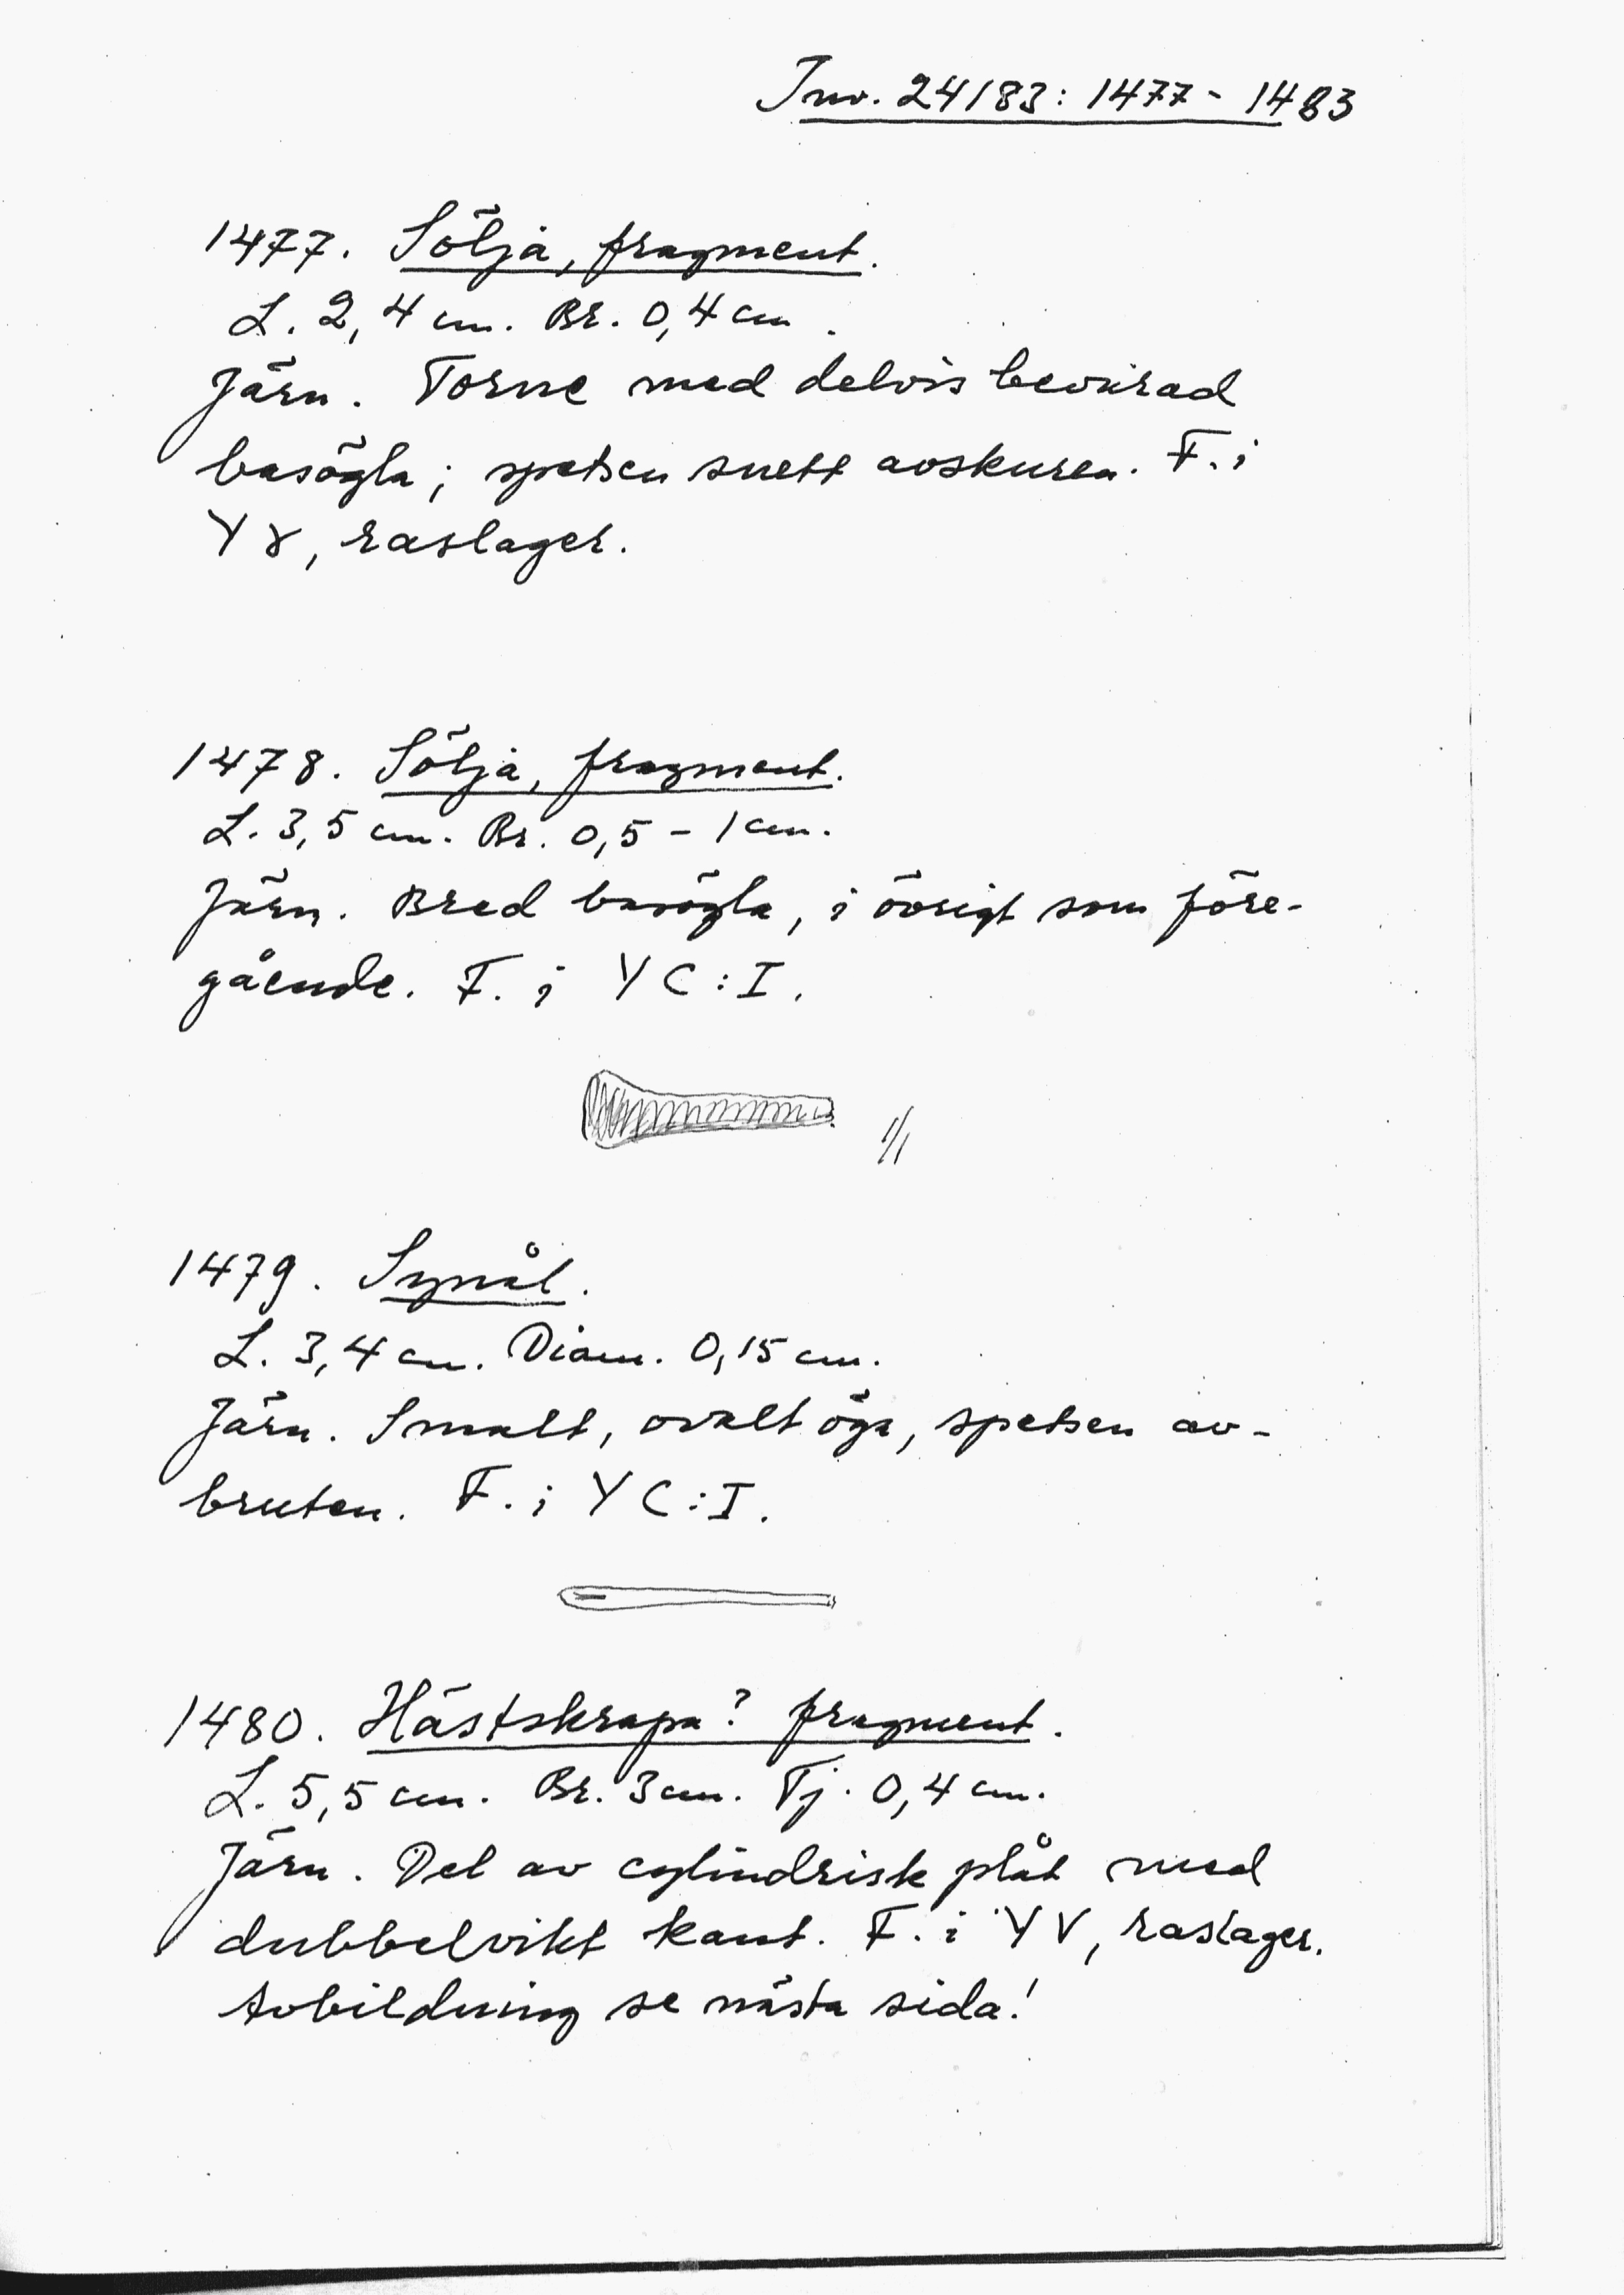 Inv. 24183: 1477 - 1483
1477. Sölja, fragment.
L. 2,4 cm. Br. 0,4 cm.
Järn. Torne med delvis bevarad
basögla; spetsen snett avskuren. F. i
Y 8, raslager.
1478. Sölja, fragment.
L. 3,5 cm. Br. 0,5 - 1 cm.
Järn. Bred basögla, i övrigt som före-
gående. F. i Y C:I.
1/1
1479. Synål.
L. 3,4 cm. Diam. 0,15 cm.
Järn. Smalt, ovalt öga, spetsen av-
bruten. F. i Y C:I.
1480. Hästskrapa? fragment.
L. 5,5 cm. Br. 3 cm. Tj. 0,4 cm.
Järn. Del av cylindrisk plåt med
dubbelvikt kant. F. i Y V, raslager.
Avbildning se nästa sida!